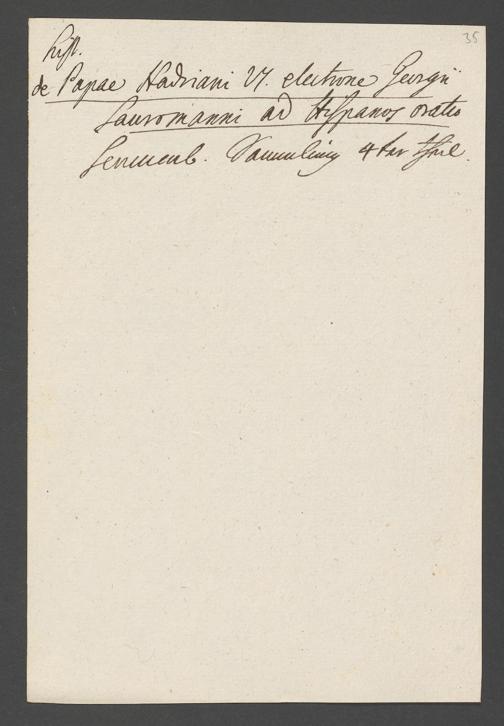 35
Hist.
de Papae Hadriani VI. electione Georgii
Sauromanni ad Hispanos oratio
Sammlung 4ter Theil.